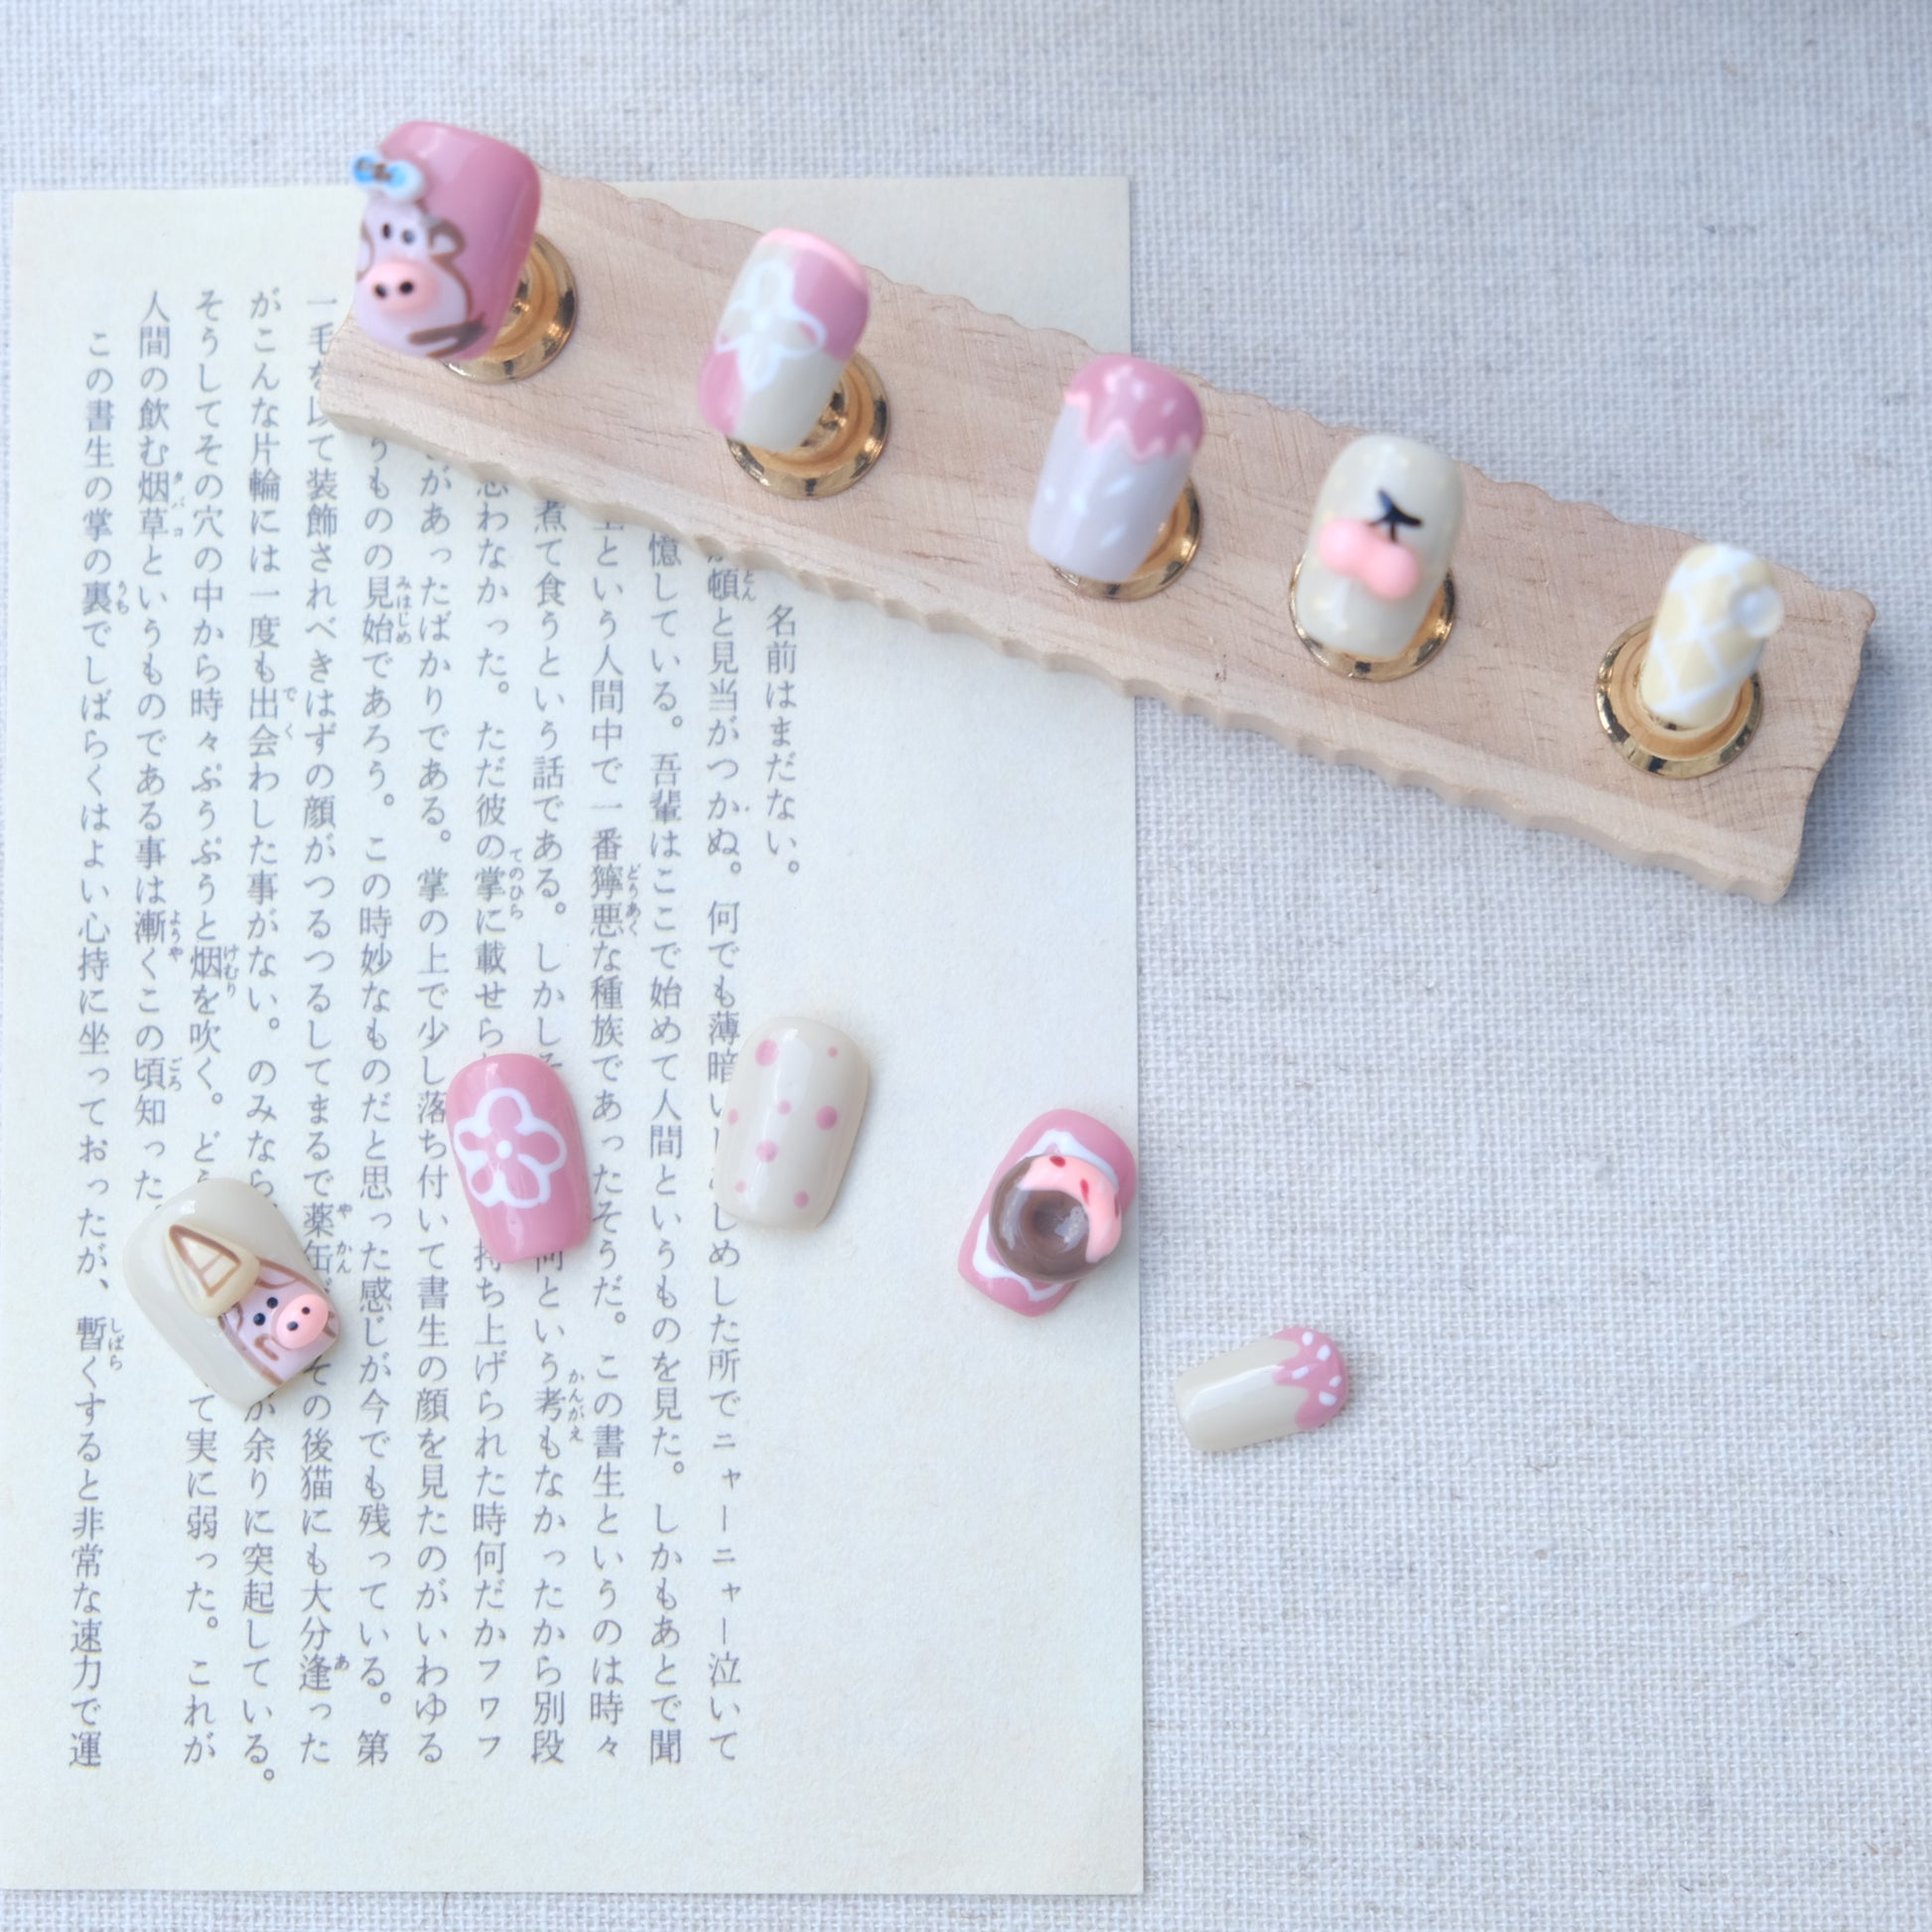 名前はまだない。
頓と見当がつかぬ。何でも薄暗い めした所でニャーニャー泣いて
憶している。吾輩はここで始めて人間というものを見た。しかもあとで聞
という人間中で一番獰悪な種族であったそうだ。この書生というのは時々
煮て食うという話である。しかし という考もなかったから別段
思わなかった。ただ彼の掌に載せら 持ち上げられた時何だかフワフ
があったばかりである。掌の上で少し落ち付いて書生の顔を見たのがいわゆる
うものの見始であろう。この時妙なものだと思った感じが今でも残っている。第
一毛を以て装飾されべきはずの顔がつるつるしてまるで薬缶 その後猫にも大分逢った
がこんな片輪には一度も出会わした事がない。のみなら が余りに突起している。
そうしてその穴の中から時々ぷうぷうと烟を吹く。どう て実に弱った。これが
人間の飲む烟草というものである事は漸くこの頃知った
この書生の掌の裏でしばらくはよい心持に坐っておったが、暫くすると非常な速力で運